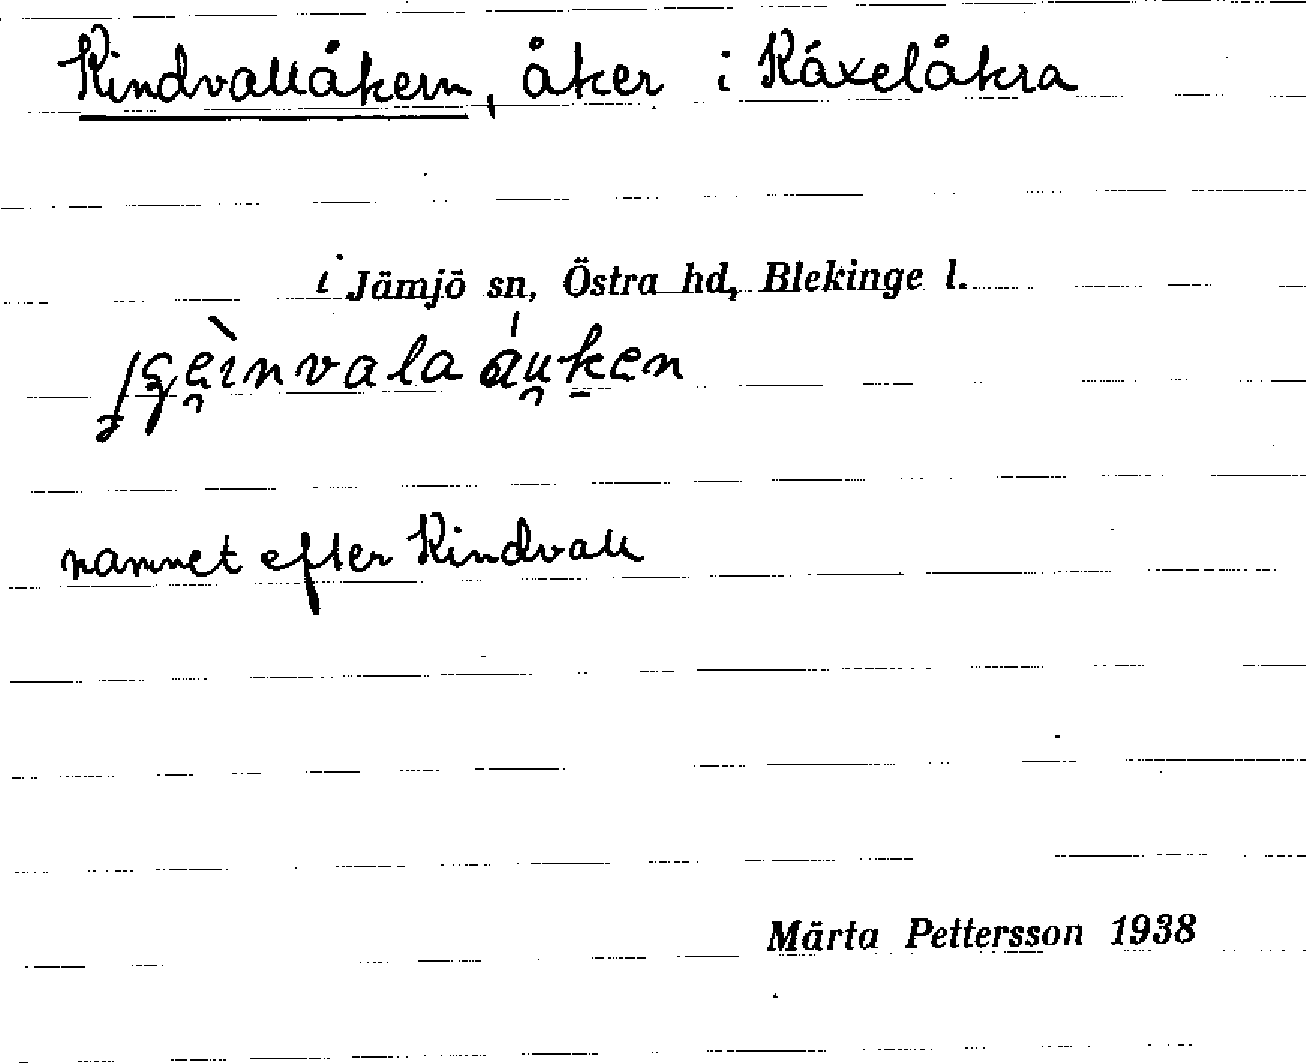 Kindvallåkern, åker i
i Jämjö sn, Östra hd, Blekinge l.
namnet efter Kindvall
Märta Pettersson 1938